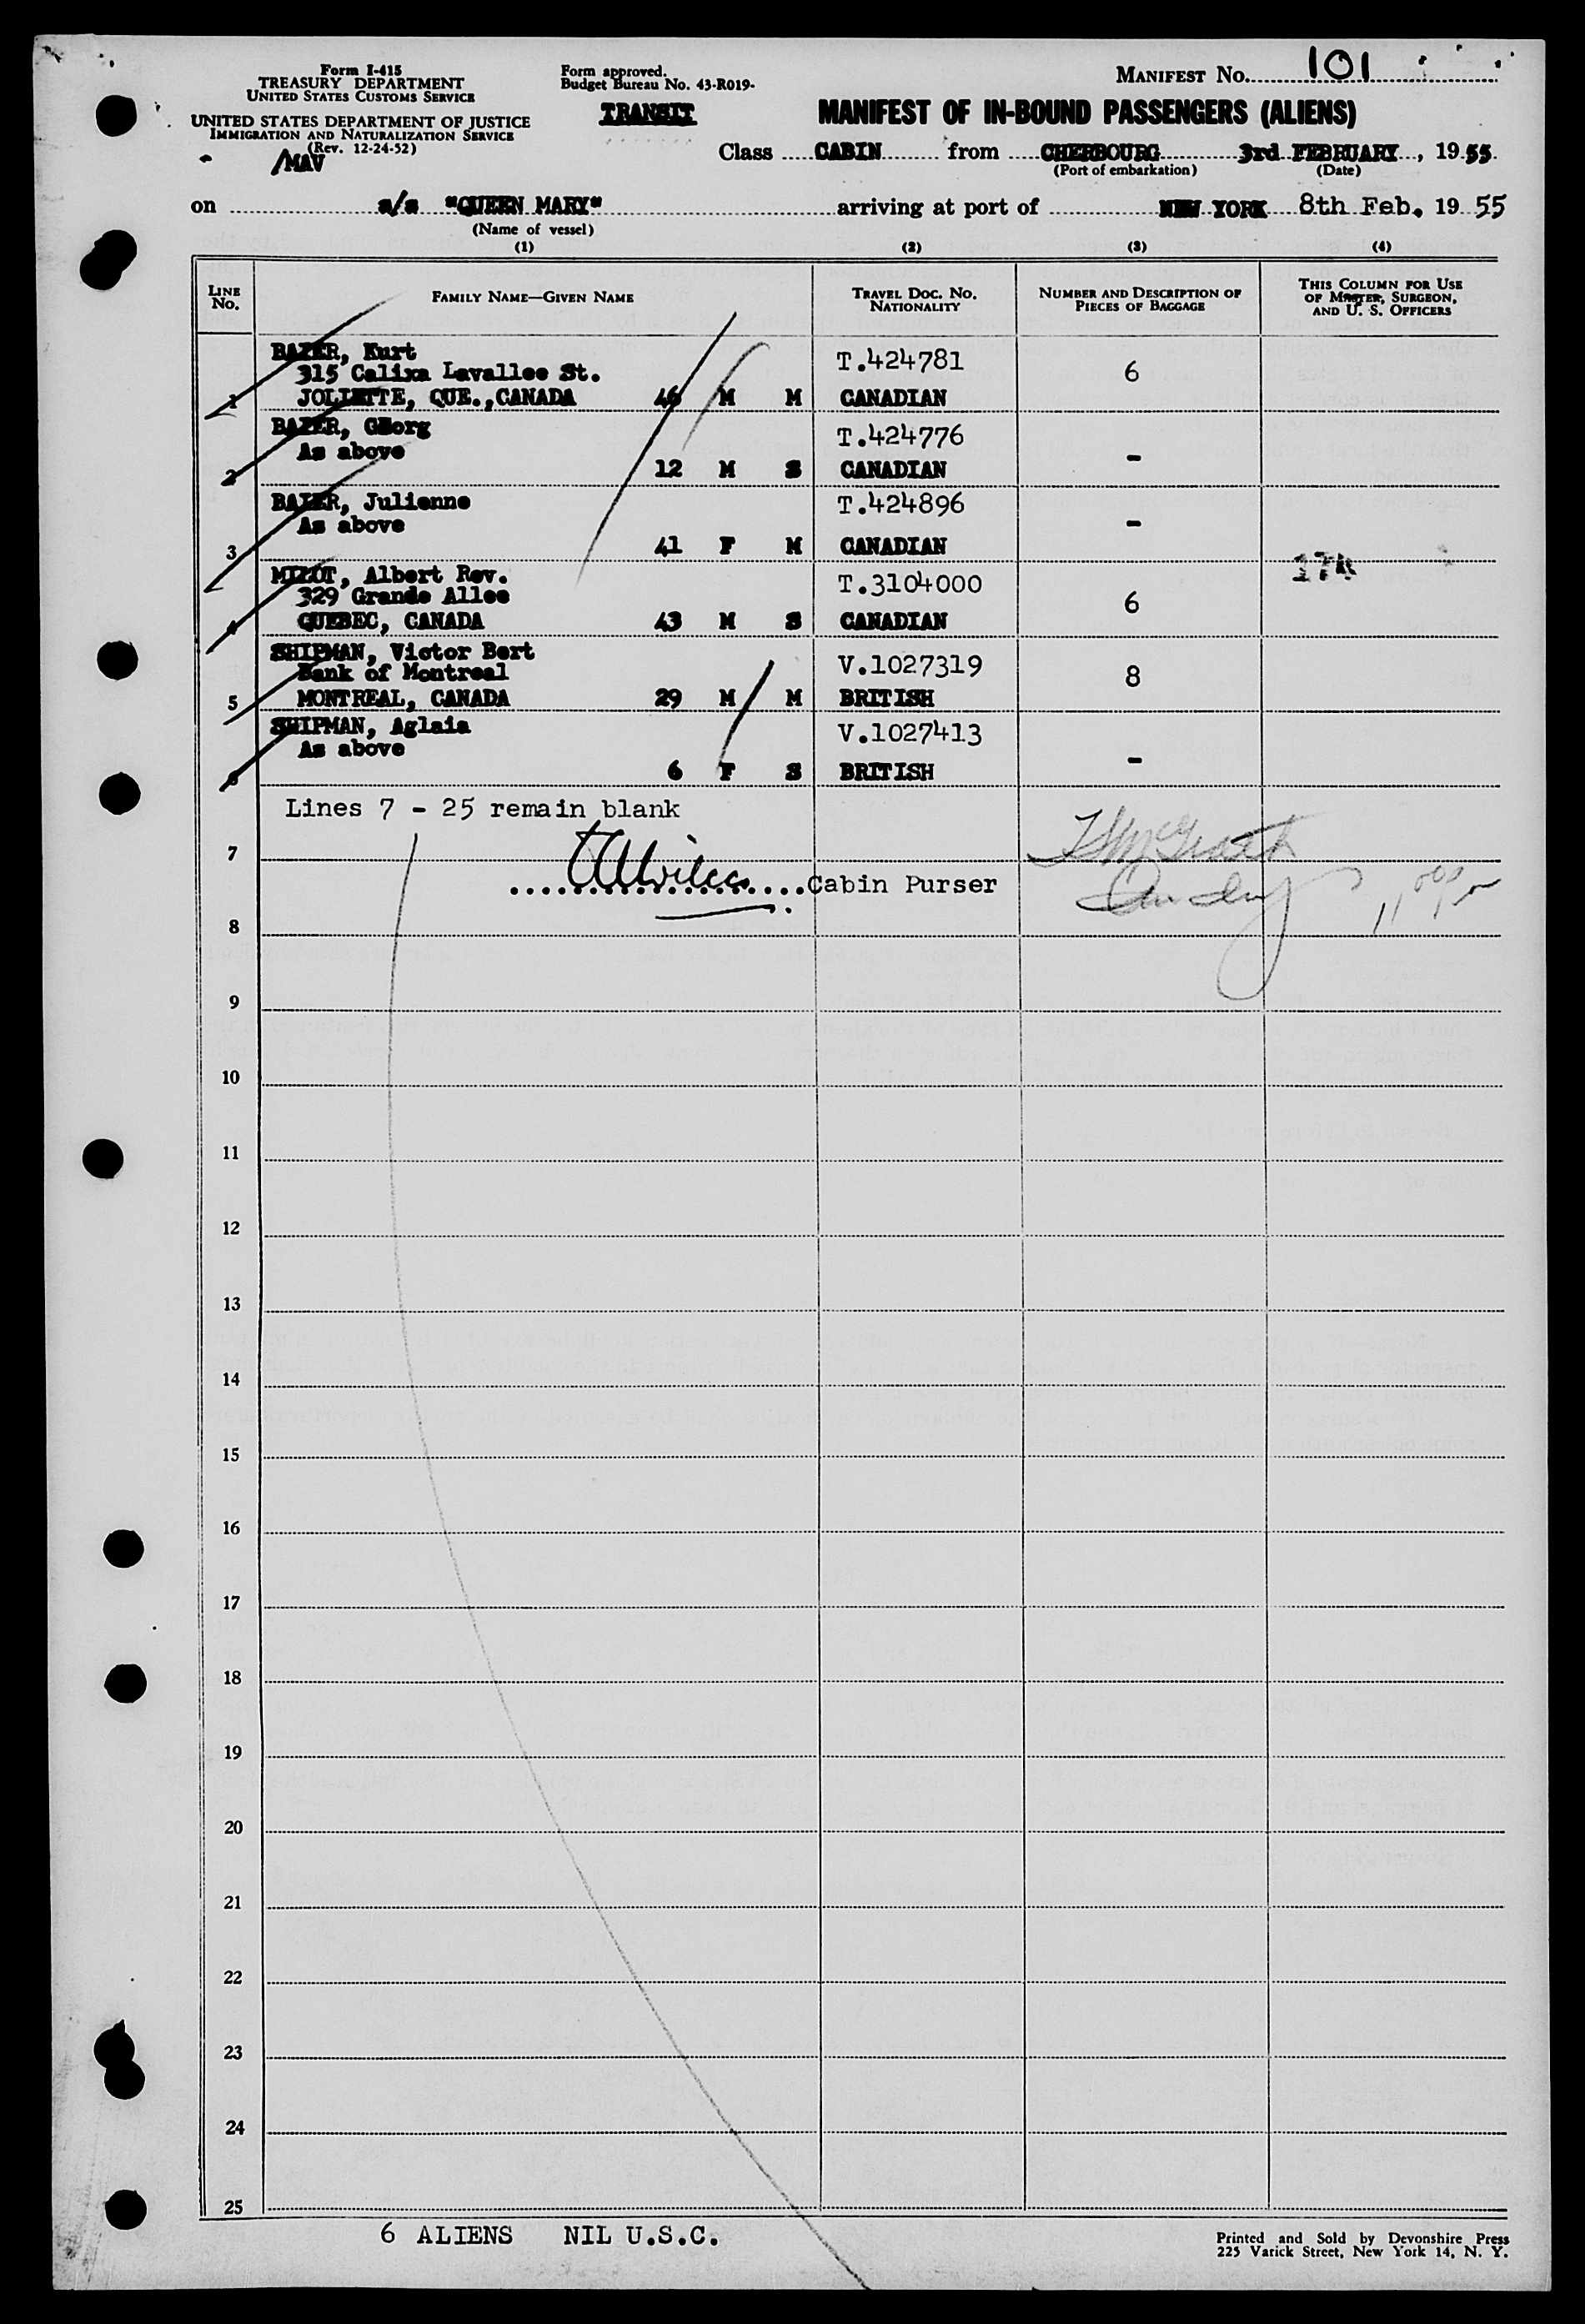 Form I-415
TREASURY DEPARTMENT
UNITED STATES CUSTOMS SERVICE
UNITED STATES DEPARTMENT OF JUSTICE
IMMIGRATION AND NATURALIZATION SERVICE
(Rev. 12-24-52)
/MAV
Form approved.
Budget Bureau No. 43-R019-
TRANSIT
MANIFEST NO. 101
MANIFEST OF IN-BOUND PASSENGERS (ALIENS)
Class CABIN from CHERBOURG 3rd FEBRUARY, 1955
(Port of embarkation) (Date)
on s/s "QUEEN MARY" arriving at port of NEW YORK 8th Feb. 1955
(Name of vessel)
(1) (2) (3) (4)
LINE NO. FAMILY NAME—GIVEN NAME TRAVEL DOC. NO. NATIONALITY NUMBER AND DESCRIPTION OF PIECES OF BAGGAGE THIS COLUMN FOR USE OF MASTER, SURGEON, AND U. S. OFFICERS
BAIER, Kurt T.424781
315 Calixa Lavallee St. 6
1 JOLIETTE, QUE., CANADA 46 M M CANADIAN
BAIER, Georg T.424776
As above -
2 12 M S CANADIAN
BAIER, Julienne T.424896
As above -
3 41 F M CANADIAN
Albert Rev. T.3104000
329 Grande Allee 6
4 QUEBEC, CANADA 43 M S CANADIAN
SHIPMAN, Victor Bert V.1027319
Bank of Montreal 8
5 MONTREAL, CANADA 29 M M BRITISH
SHIPMAN, Aglaia V.1027413
As above -
6 6 F S BRITISH
Lines 7 - 25 remain blank
7
Cabin Purser
8
9
10
11
12
13
14
15
16
17
18
19
20
21
22
23
24
25
6 ALIENS NIL U.S.C.
Printed and Sold by Devonshire Press
225 Varick Street, New York 14, N. Y.